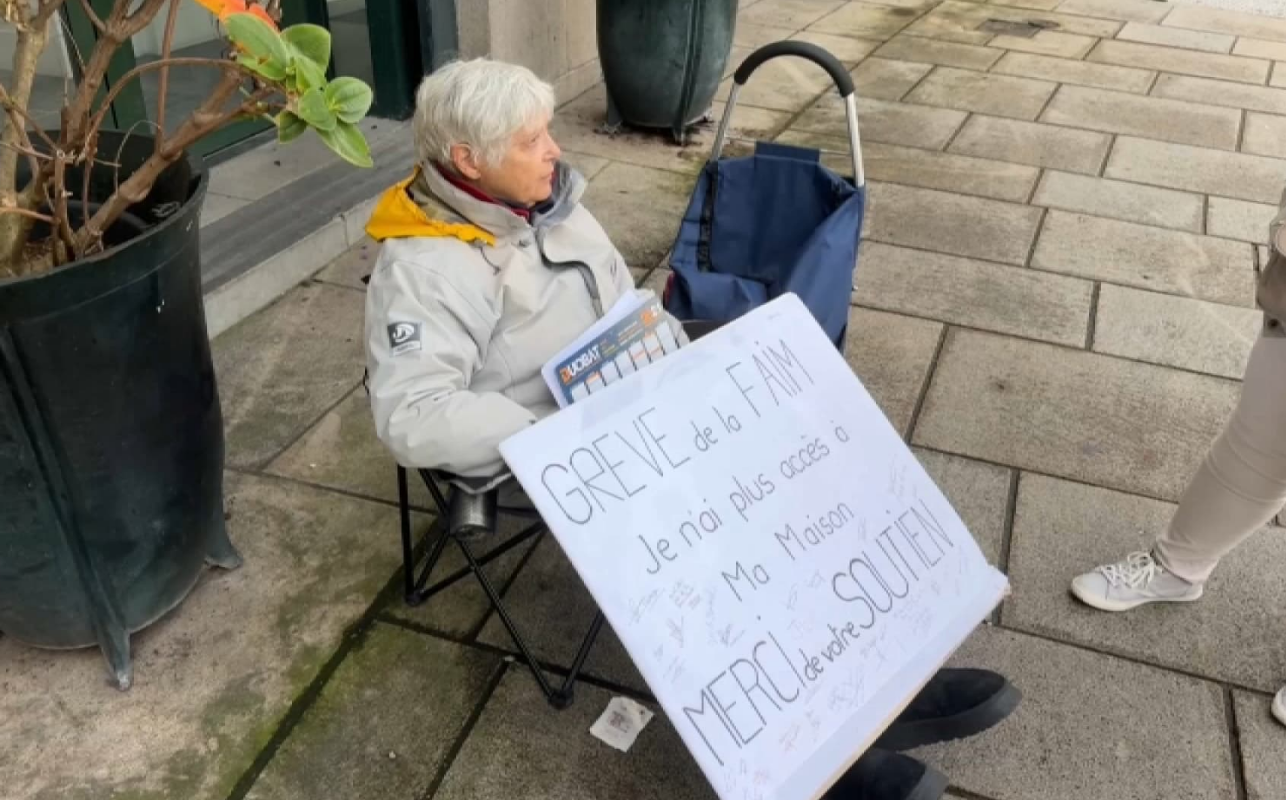 DUOBAT
GREVE de la FAIM
Je n'ai plus accès à
Ma Maison
MERCI de votre SOUTIEN